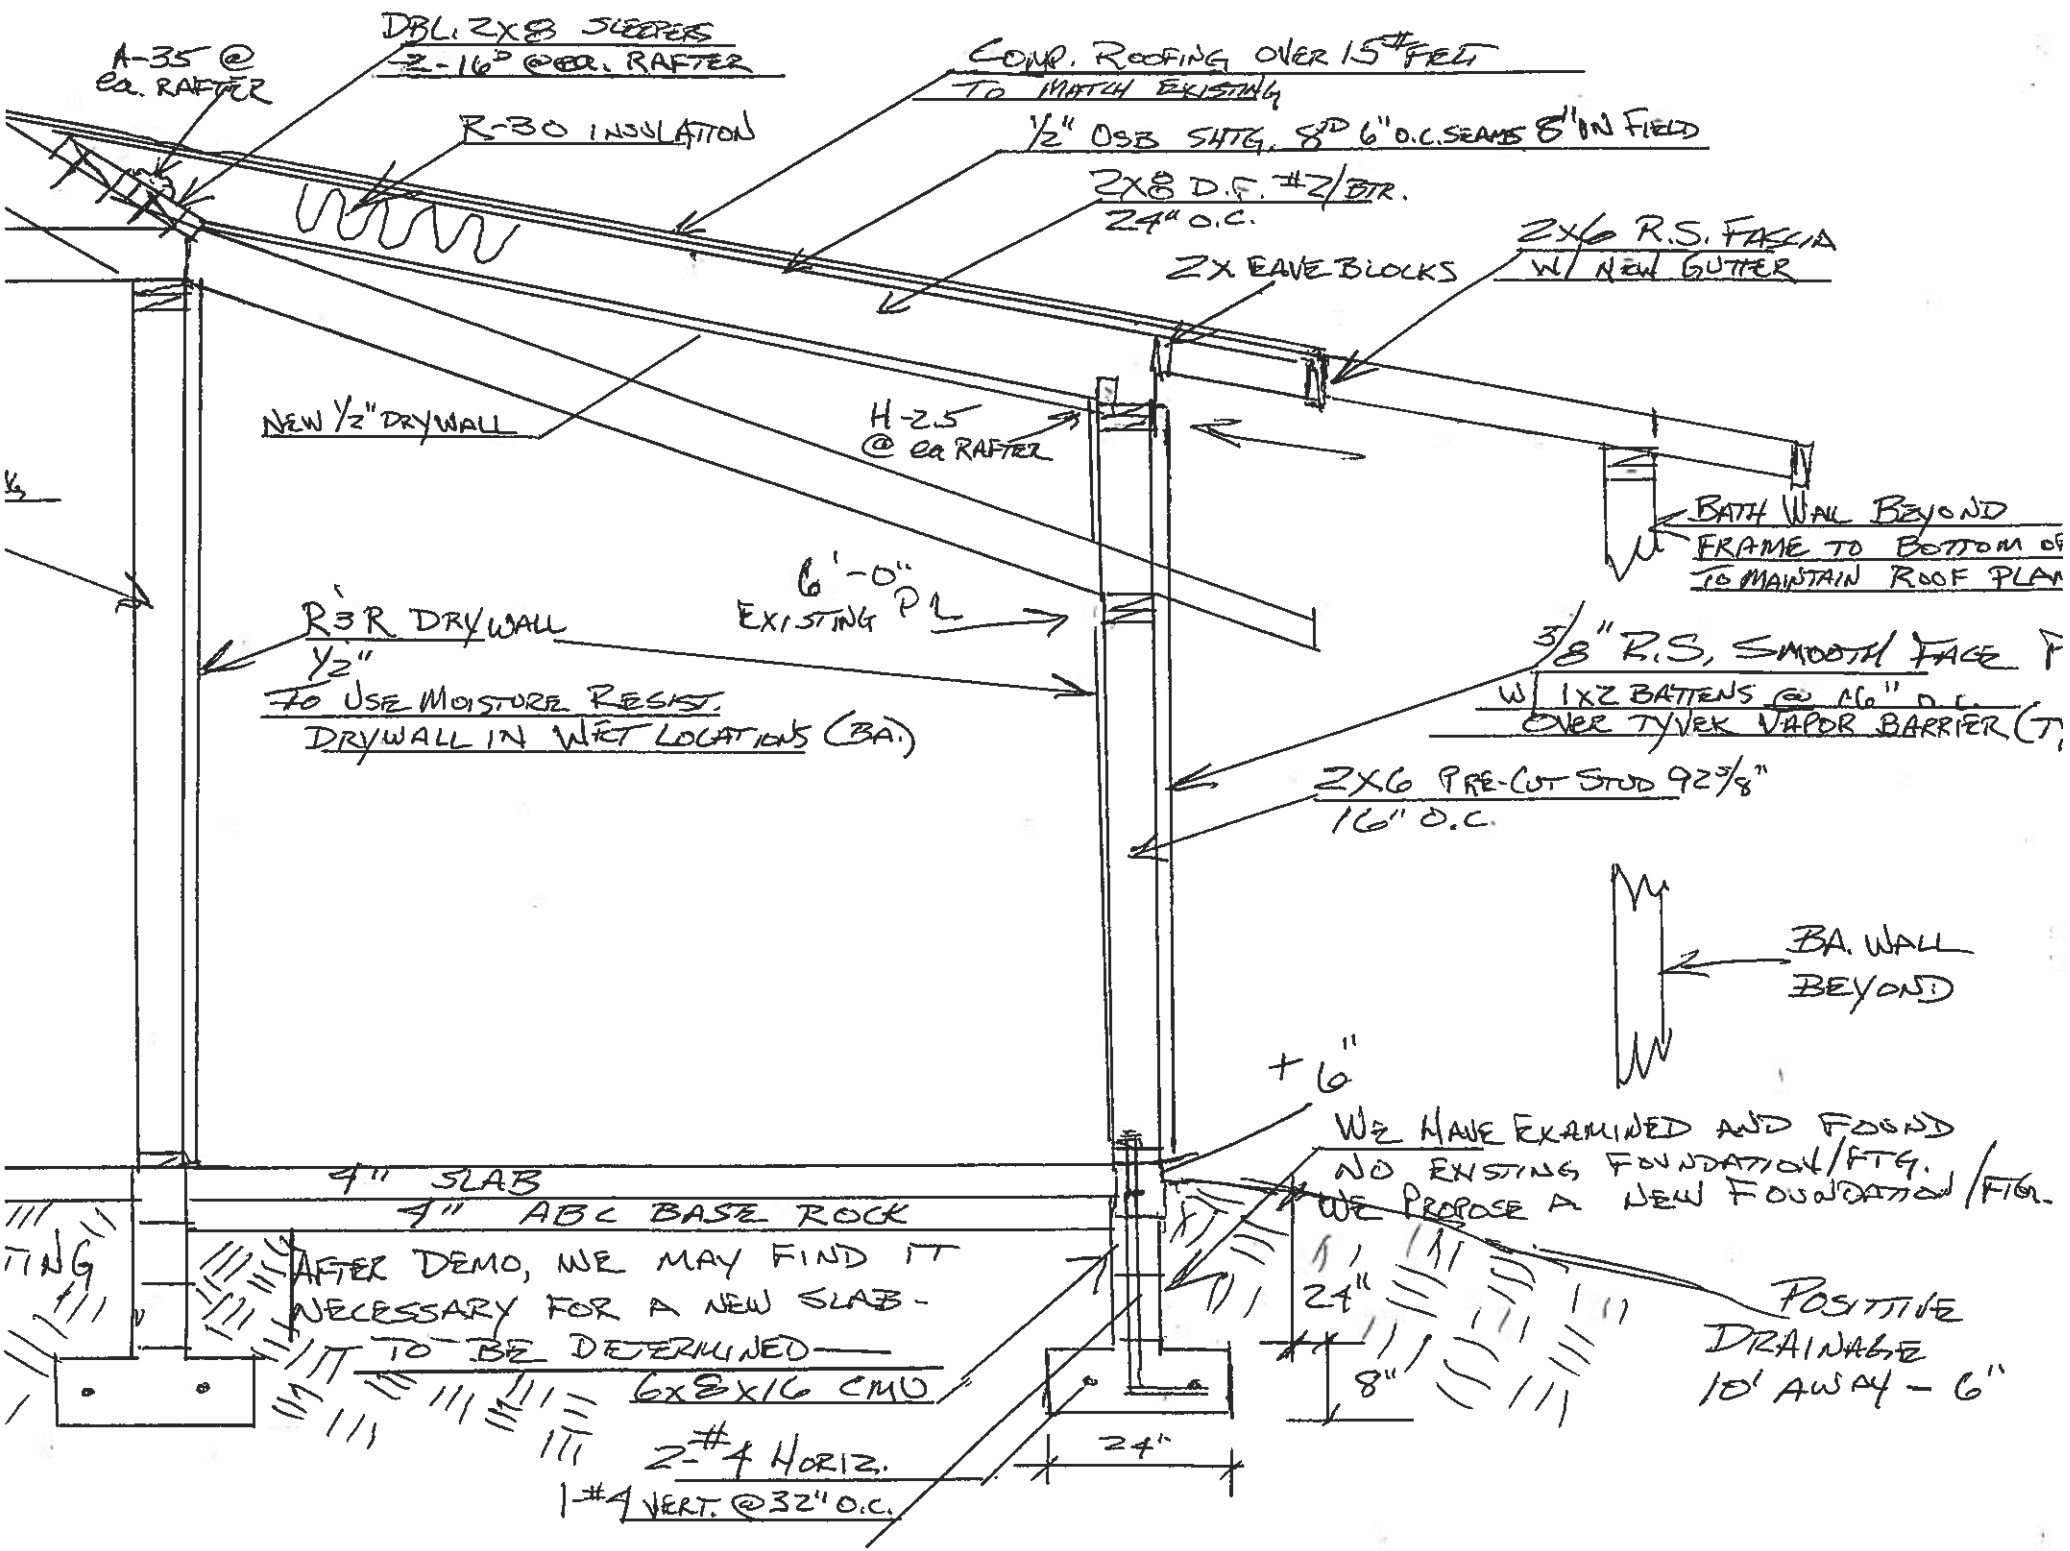 A-35 @
ea. RAFTER
DBL. 2X8 SLEEPERS
2-16D @ ea. RAFTER
R-30 INSULATION
COMP. ROOFING OVER 15# FELT
TO MATCH EXISTING
1/2" OSB SHTG. 8D 6" O.C. SEAMS 8" IN FIELD
2X8 D.F. #2/BTR.
24" O.C.
2X EAVE BLOCKS
2X6 R.S. FASCIA
W/ NEW GUTTER
NEW 1/2" DRYWALL
H-2.5
@ ea RAFTER
BATH WALL BEYOND
FRAME TO BOTTOM OF
TO MAINTAIN ROOF PLAN
6'-0"
EXISTING PL
R&R DRYWALL
1/2"
TO USE MOISTURE RESIST.
DRYWALL IN WET LOCATIONS (BA.)
5/8" R.S. SMOOTH FACE P
W/ 1X2 BATTENS @ 16" O.C.
OVER TYVEK VAPOR BARRIER (TY
2X6 PRE-CUT STUD 92 5/8"
16" O.C.
BA. WALL
BEYOND
+6"
WE HAVE EXAMINED AND FOUND
NO EXISTING FOUNDATION/FTG.
WE PROPOSE A NEW FOUNDATION/FTG.
4" SLAB
4" ABC BASE ROCK
TING
AFTER DEMO, WE MAY FIND IT
NECESSARY FOR A NEW SLAB-
TO BE DETERMINED
6X8X16 CMU
24"
8"
POSITIVE
DRAINAGE
10' AWAY - 6"
24"
2-#4 HORIZ.
1-#4 VERT. @ 32" O.C.